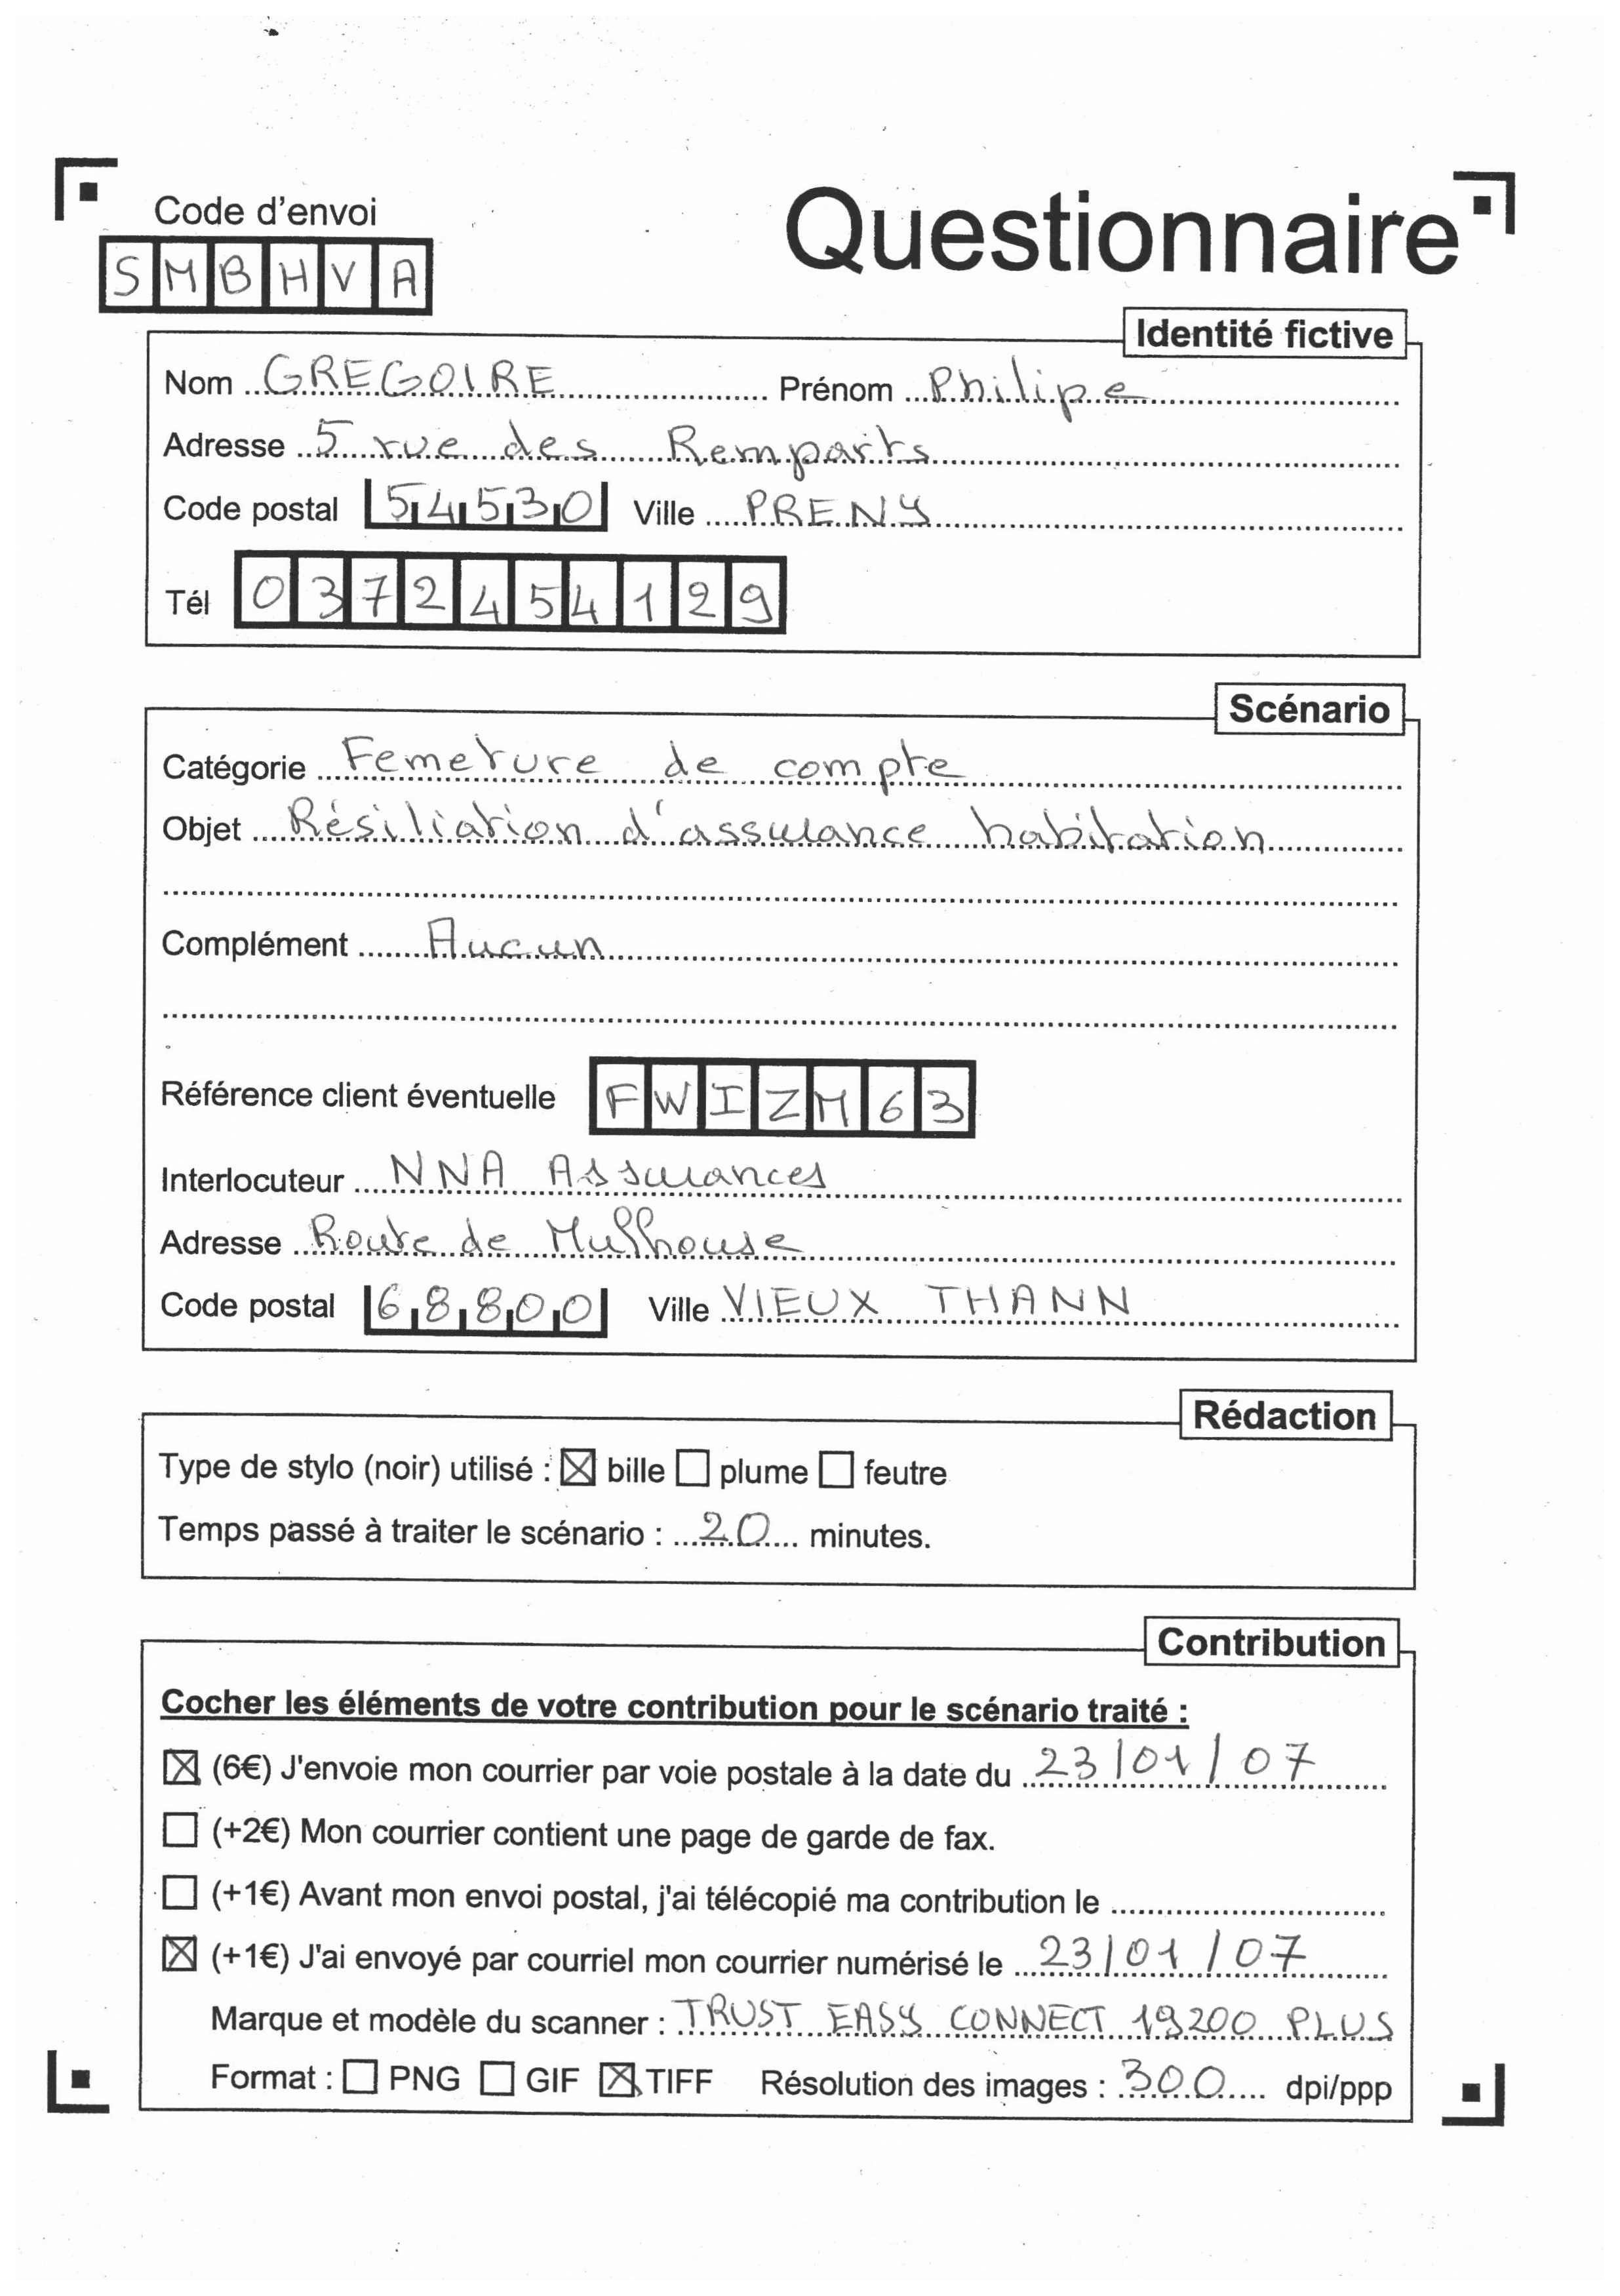 Code d'envoi
Questionnaire
SMBHVA
Identité fictive
Nom GREGOIRE Prénom Philipe
Adresse 5 rue des Remparts
Code postal 54530 Ville PRENY
Tél 0372454129
Scénario
Catégorie Femeture de compte
Objet Résiliation d'assurance habitation
Complément Aucun
Référence client éventuelle FWIZM63
Interlocuteur NNA Assurances
Adresse Route de Mulhouse
Code postal 68800 Ville VIEUX THANN
Rédaction
Type de stylo (noir) utilisé : ☒ bille ☐ plume ☐ feutre
Temps passé à traiter le scénario : 20 minutes.
Contribution
Cocher les éléments de votre contribution pour le scénario traité :
☒ (6€) J'envoie mon courrier par voie postale à la date du 23/01/07
☐ (+2€) Mon courrier contient une page de garde de fax.
☐ (+1€) Avant mon envoi postal, j'ai télécopié ma contribution le
☒ (+1€) J'ai envoyé par courriel mon courrier numérisé le 23/01/07
Marque et modèle du scanner : TRUST EASY CONNECT 19200 PLUS
Format : ☐ PNG ☐ GIF ☒ TIFF Résolution des images : 300 dpi/ppp